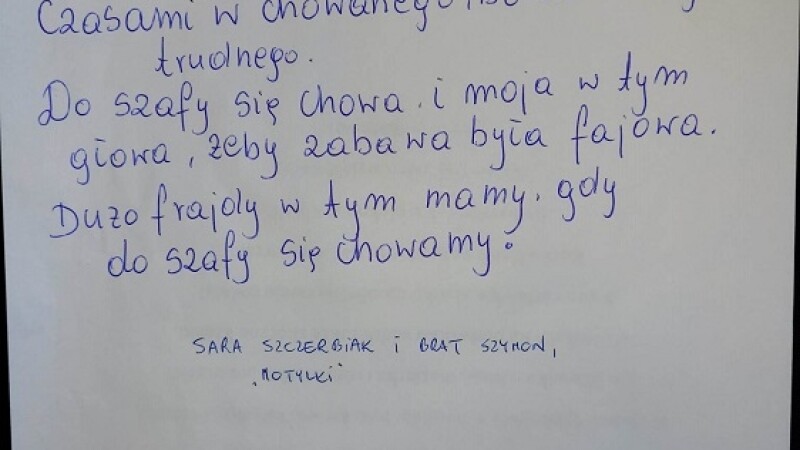 Czasami w chowanego,
trudnego.
Do szafy się chowa i moja w tym
głowa, żeby zabawa była fajowa.
Dużo frajdy w tym mamy, gdy
do szafy się chowamy.
SARA SZCZERBIAK i BRAT SZYMON,
"MOTYLKI"